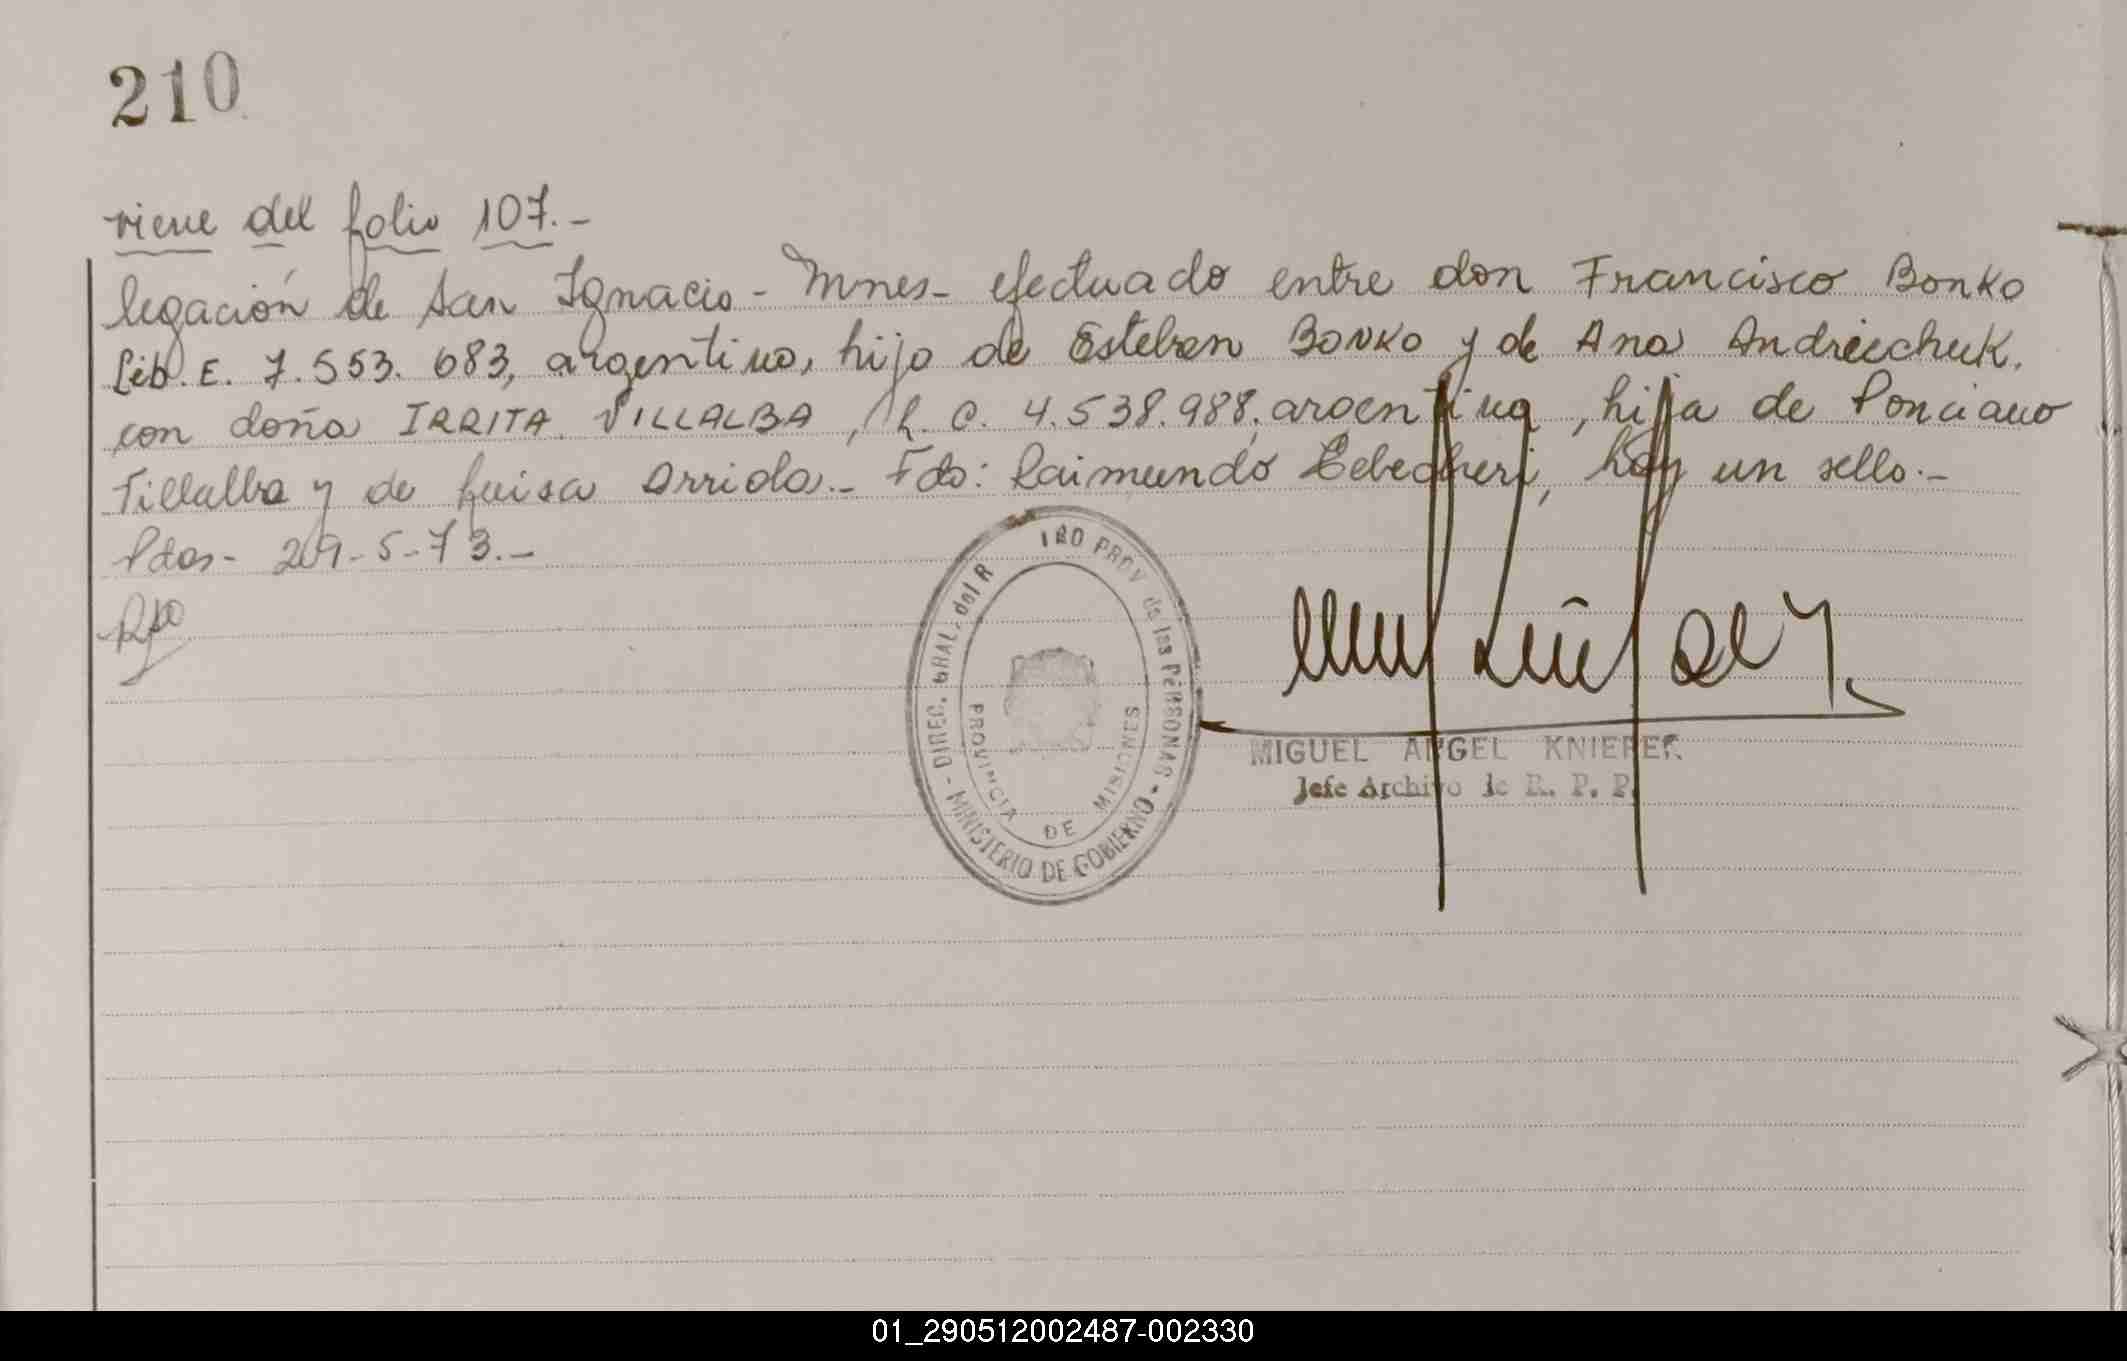 210
viene del folio 107.-
legación de San Ignacio - Mnes - efectuado entre don Francisco Bonko
Lib. E. 7.553.683, argentino, hijo de Esteban Bonko y de Ana Andreichuk.
con doña IRRITA VILLALBA, L. C. 4.538.988, argentina, hija de Ponciano
Villalba y de Luisa Arriola.- Fdo: Raimundo, hay un sello.-
Pdas- 29-5-73.-
DIREC. GRAL. del R IRO PROV de las PERSONAS - MINISTERIO DE GOBIERNO -
PROVINCIA DE MISIONES
MIGUEL ANGEL KNIEPER
Jefe Archivo de R. P. P.
01_290512002487-002330